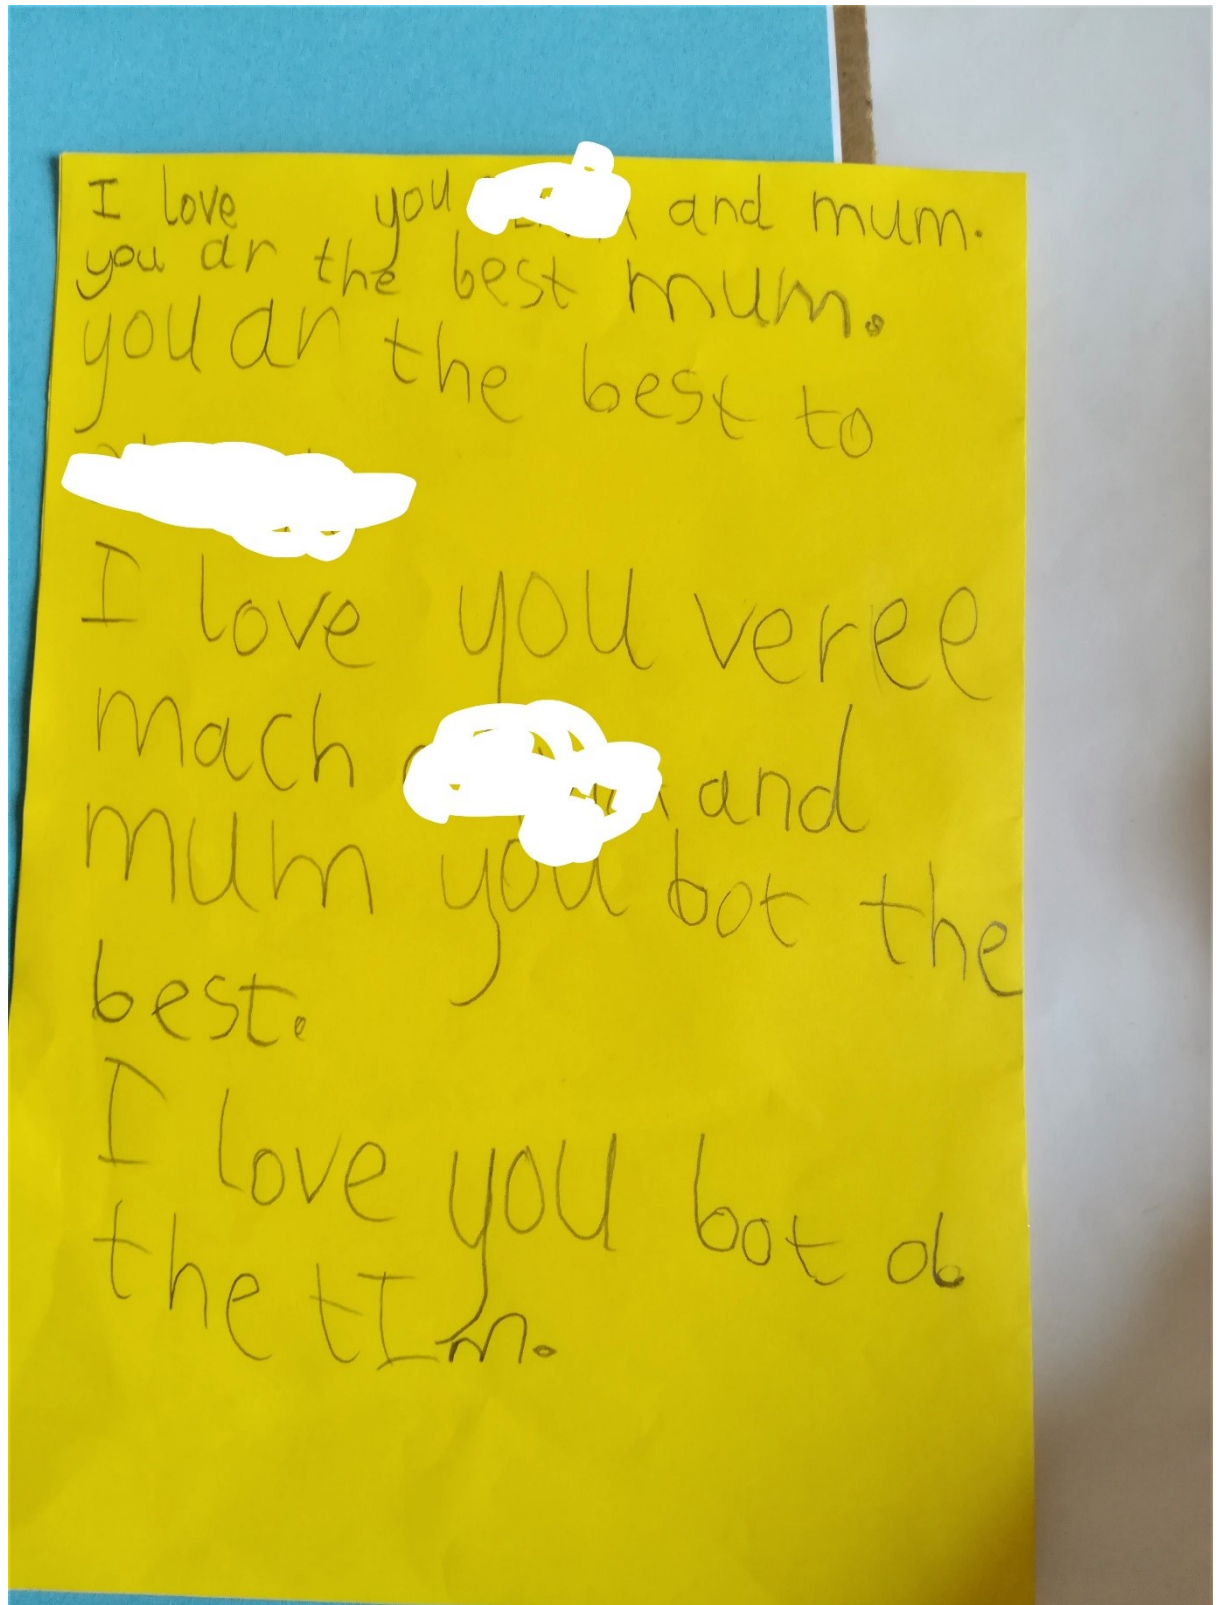 I love you and mum.
you ar the best mum.
you ar the best to
I love you veree
mach and
mum you bot the
best.
I love you bot ob
the tIm.